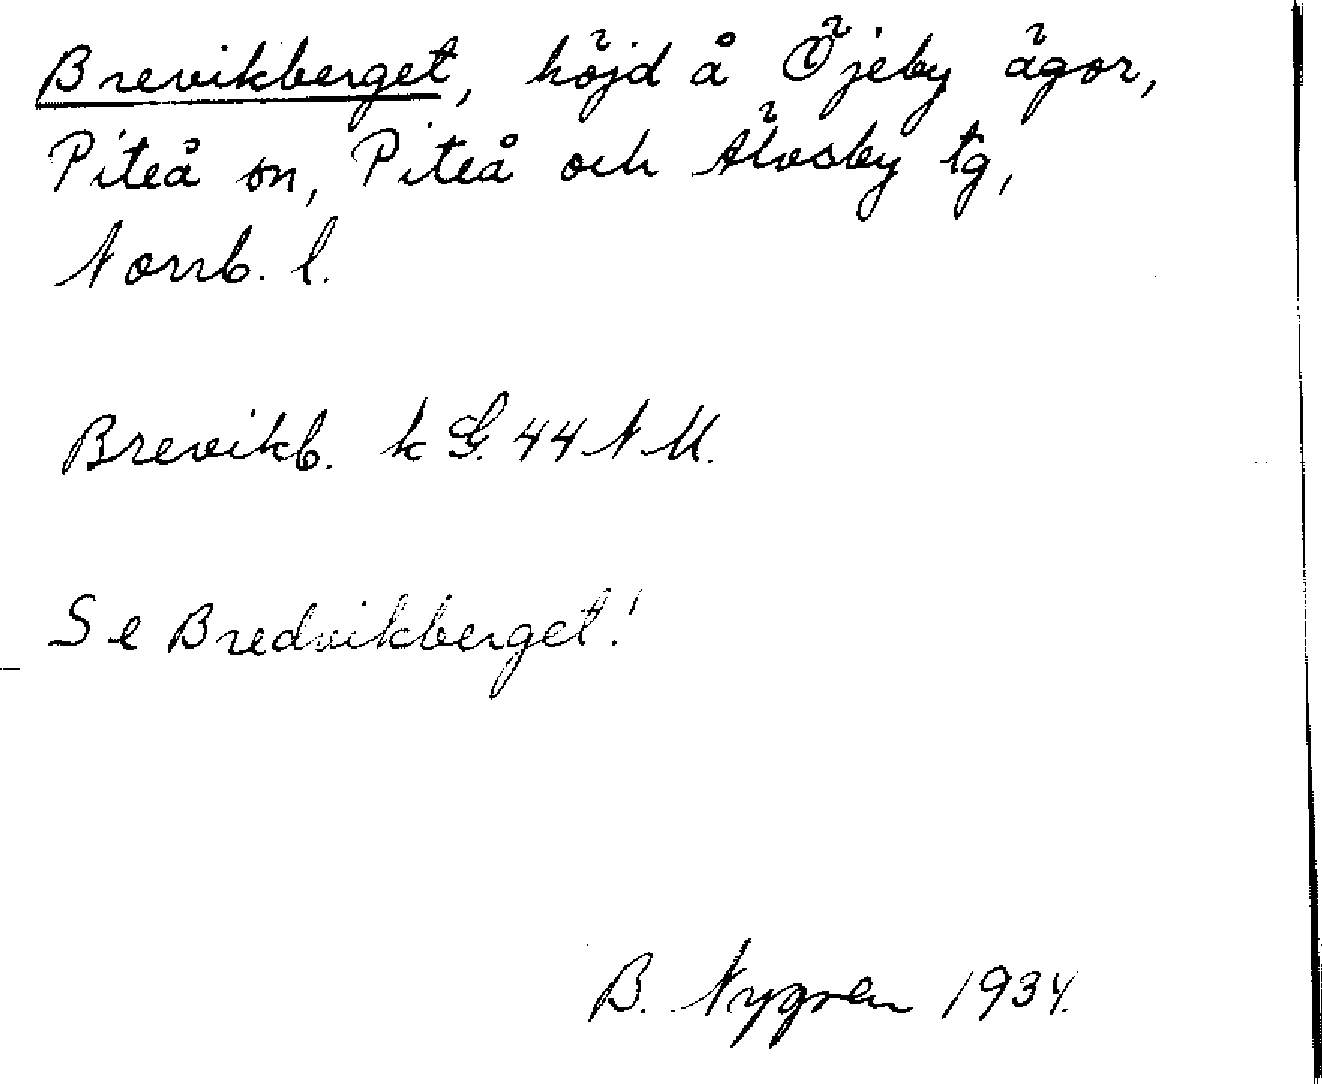 Brevikberget, höjd å Öjeby ägor,
Piteå sn, Piteå och Älvsby tg,
Norrb. l.
Brevikb. k G. 44 N U.
Se Bredvikberget!
B. Nygren 1934.